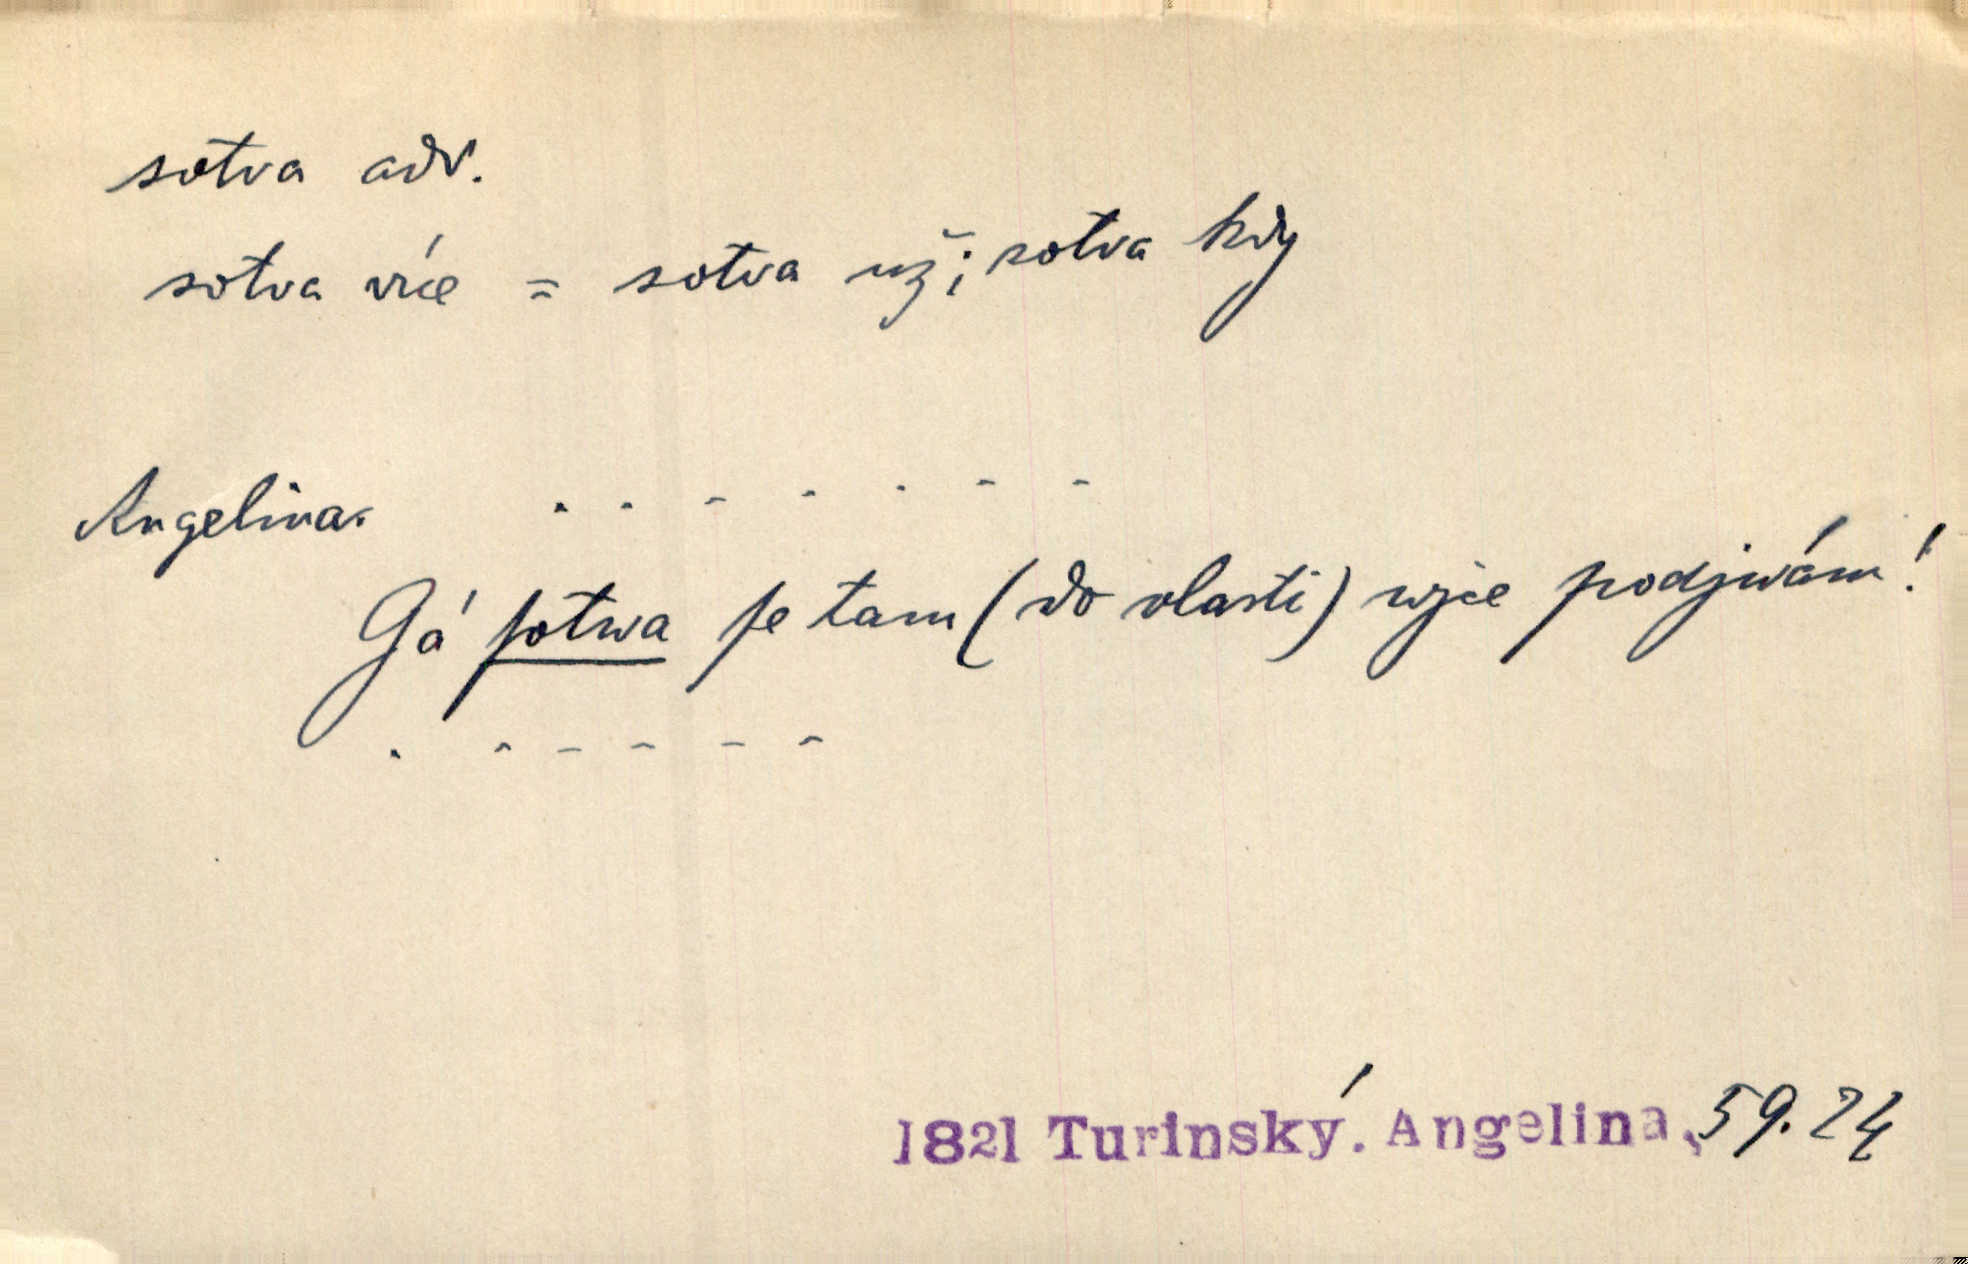 sotva adv.
sotva více = sotva už; sotva kdy
Angelina. . . - - . - -
Gá ſotwa ſe tam (do vlasti) wjce podjwám!
. - - - - -
1821 Turinský. Angelina, 59.24